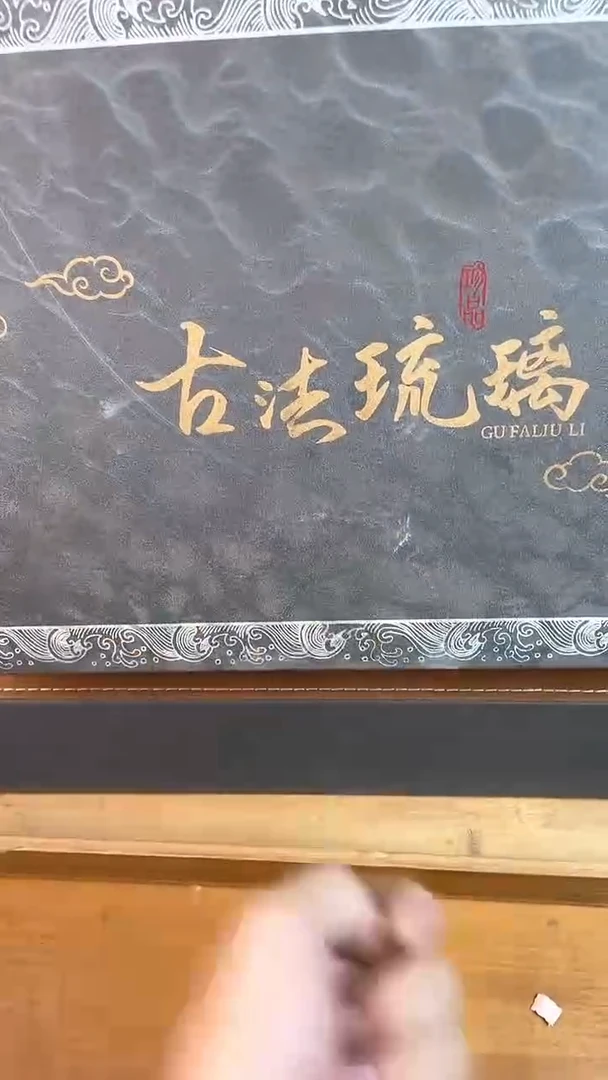 珍品
古法琉璃
GU FA LIU LI